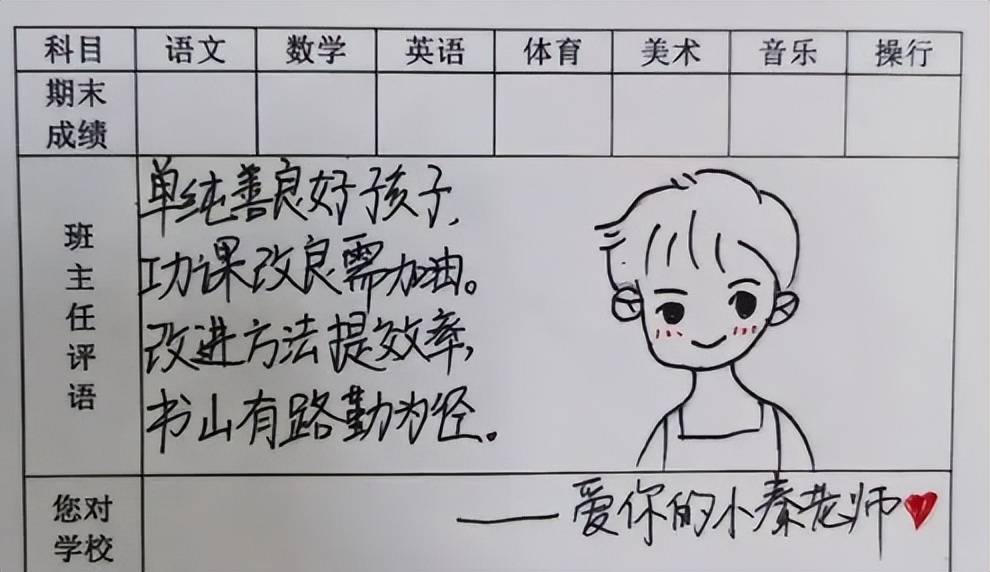 科目 语文 数学 英语 体育 美术 音乐 操行
期末
成绩
班主任评语
单纯善良好孩子,
功课改良需加油。
改进方法提效率,
书山有路勤为径。
您对
学校
——爱你的小秦老师